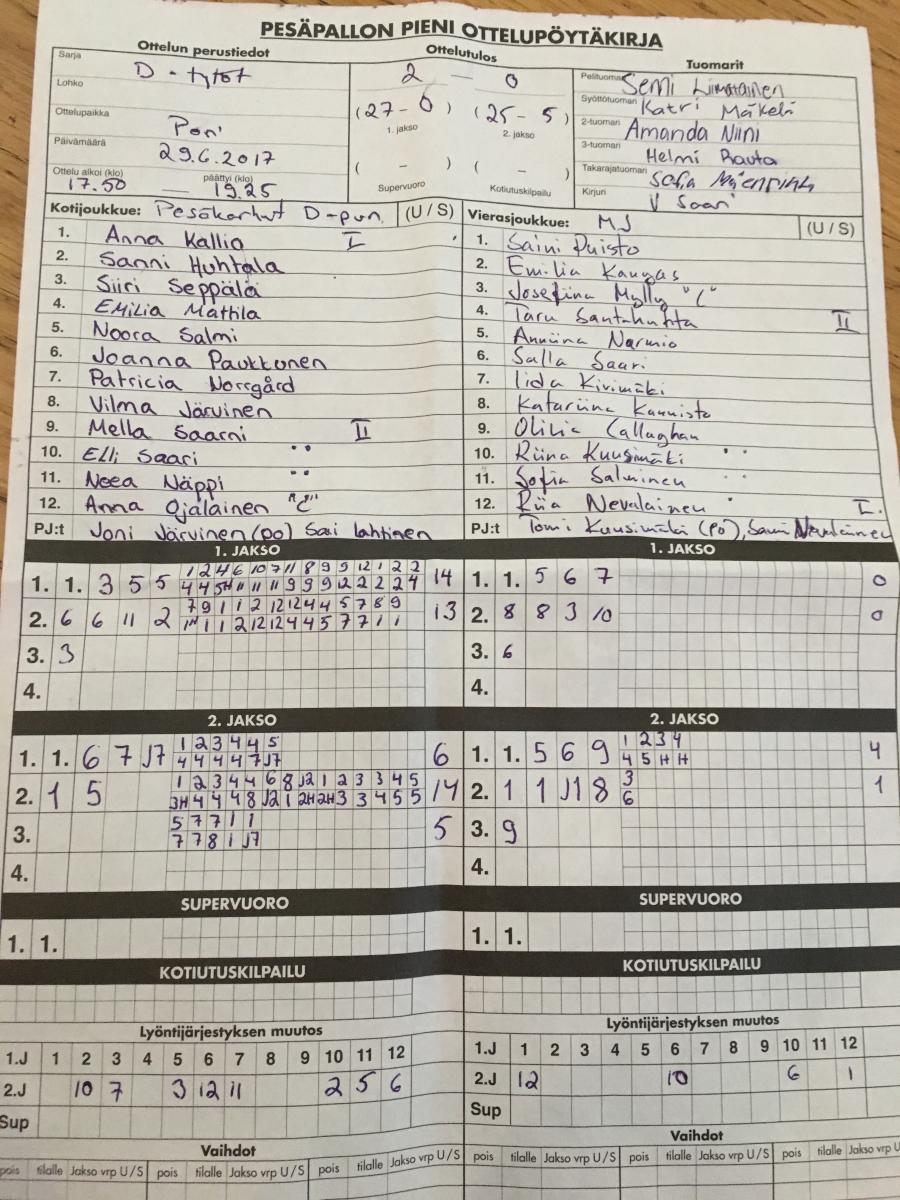 PESÄPALLON PIENI OTTELUPÖYTÄKIRJA
Ottelun perustiedot Ottelutulos Tuomarit
Sarja D - tytöt
Lohko
Ottelupaikka Pori
Päivämäärä 29.6.2017
Ottelu alkoi (klo) 17.50 — päättyi (klo) 19.25
2 — 0
(27 - 0) (25 - 5)
1. jakso 2. jakso
( - ) ( - )
Supervuoro Kotiutuskilpailu
Pelituomari Semi Liimatainen
Syöttötuomari Katri Mäkelä
2-tuomari Amanda Niini
3-tuomari Helmi Rauta
Takarajatuomari Sofia
Kirjuri V Saari
Kotijoukkue: Pesäkarhut D-pun. (U / S) Vierasjoukkue: MJ (U / S)
1. Anna Kallio I
2. Sanni Huhtala
3. Siiri Seppälä
4. Emilia Mattila
5. Noora Salmi
6. Joanna Paukkonen
7. Patricia Norrgård
8. Vilma Järvinen
9. Mella Saarni II
10. Elli Saari "
11. Neea Näppi "
12. Anna Ojalainen "C"
PJ:t Joni Järvinen (po) Sari Lahtinen
1. Saini Puisto
2. Emilia Kangas
3. Josefina Mylly "C"
4. Taru Santahuhta II
5. Anniina Narmio
6. Salla Saari
7. Iida Kivimäki
8. Katariina Kaunisto
9. Olilia Callaghan
10. Riina Kuusimäki "
11. Sofia Salminen "
12. Riia Nevalainen " I.
PJ:t Tomi Kuusimäki (po), Sami Nevalainen
1. JAKSO
1. 1. 3 5 5 1 2 4 6 10 7 11 8 9 9 12 1 2 2 14
4 4 5H 11 11 11 9 9 9 12 2 2 2 4
2. 6 6 11 2 7 9 1 1 2 12 12 4 4 5 7 8 9 13
1 1 2 12 12 4 4 5 7 7 1 1
3. 3
4.
1. JAKSO
1. 1. 5 6 7 0
2. 8 8 3 10 0
3. 6
4.
2. JAKSO
1. 1. 6 7 J7 1 2 3 4 4 5 6
4 4 4 4 7 J7
2. 1 5 1 2 3 4 4 6 8 J2 1 2 3 3 4 5 14
3H 4 4 4 8 J2 1 2H 2H 3 3 4 5 5
3. 5 7 7 1 1 5
7 7 8 1 J7
4.
2. JAKSO
1. 1. 5 6 9 1 2 3 4 4
4 5 H H
2. 1 1 J1 8 3 1
6
3. 9
4.
SUPERVUORO SUPERVUORO
1. 1. 1. 1.
KOTIUTUSKILPAILU KOTIUTUSKILPAILU
Lyöntijärjestyksen muutos
1.J 1 2 3 4 5 6 7 8 9 10 11 12
2.J 10 7 3 12 11 2 5 6
Sup
Lyöntijärjestyksen muutos
1.J 1 2 3 4 5 6 7 8 9 10 11 12
2.J 12 10 6 1
Sup
Vaihdot
pois tilalle Jakso vrp U / S pois tilalle Jakso vrp U / S pois tilalle Jakso vrp U / S
Vaihdot
pois tilalle Jakso vrp U / S pois tilalle Jakso vrp U / S pois tilalle Jakso vrp U / S